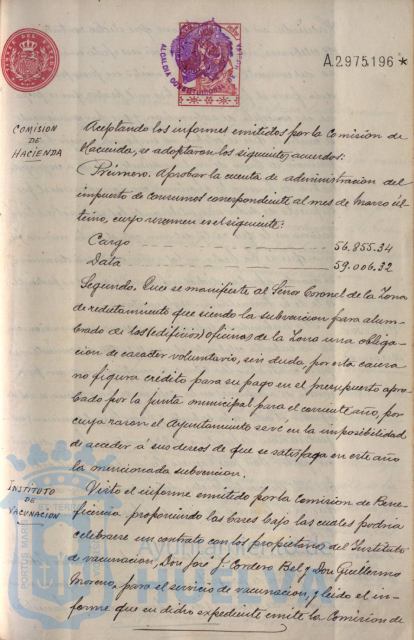 A.2975196 *
ALCALDIA CONSTITUCIONAL
COMISION
DE
HACIENDA
Aceptando los informes emitidos por la Comision de
Hacienda, se adoptaron los siguientes acuerdos:
Primero. Aprobar la cuenta de administracion del
impuesto de consumos correspondiente al mes de Marzo úl-
timo, cuyo resumen es el siguiente:
Cargo 56.855.34
Data 59.006.32
Segundo. Que se manifieste al Señor Coronel de la Zona
de reclutamiento que siendo la subvencion para alum-
brado de las (edificios) oficinas de la Zona una obliga-
cion de caracter voluntario, sin duda, por esta causa
no figura crédito para su pago en el presupuesto apro-
bado por la junta municipal para el corriente año, por
cuya razon el Ayuntamiento se vé en la imposibilidad
de acceder á sus deseos de que se satisfaga en este año
la mencionada subvencion.
INSTITUTO
DE
VACUNACION
Visto el informe emitido por la Comision de Bene-
ficencia proponiendo las bases bajo las cuales podria
celebrarse un contrato con los propietarios del Instituto
de vacunacion, Don José J. Cordero Bel y Don Guillermo
Moreno, para el servicio de vacunacion, y leido el in-
forme que en dicho expediente emite la Comision de